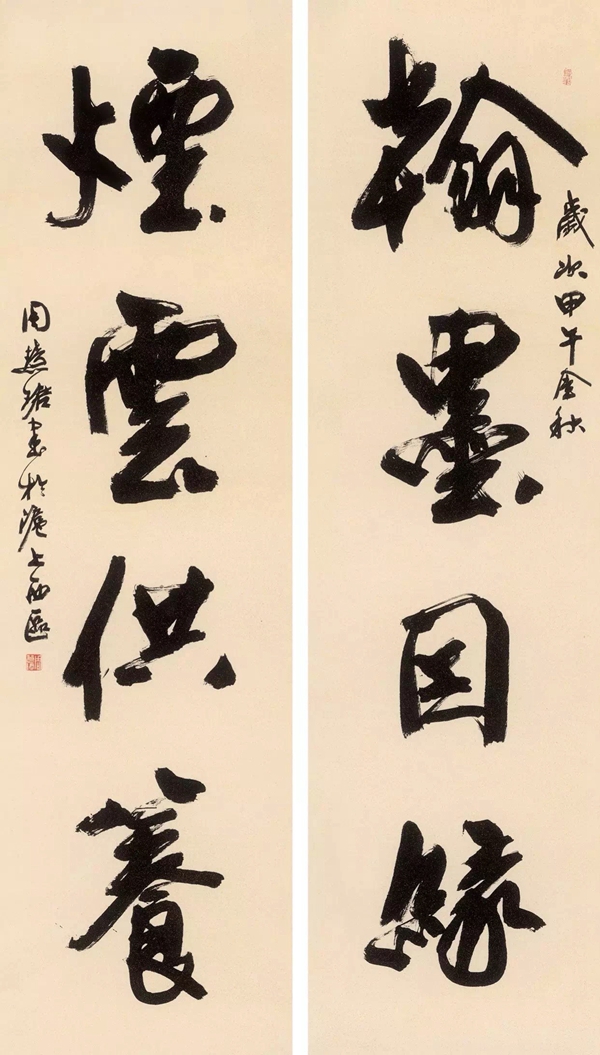 翰墨因緣
歲次甲午金秋
煙雲供養
周慧珺書於滬上西區